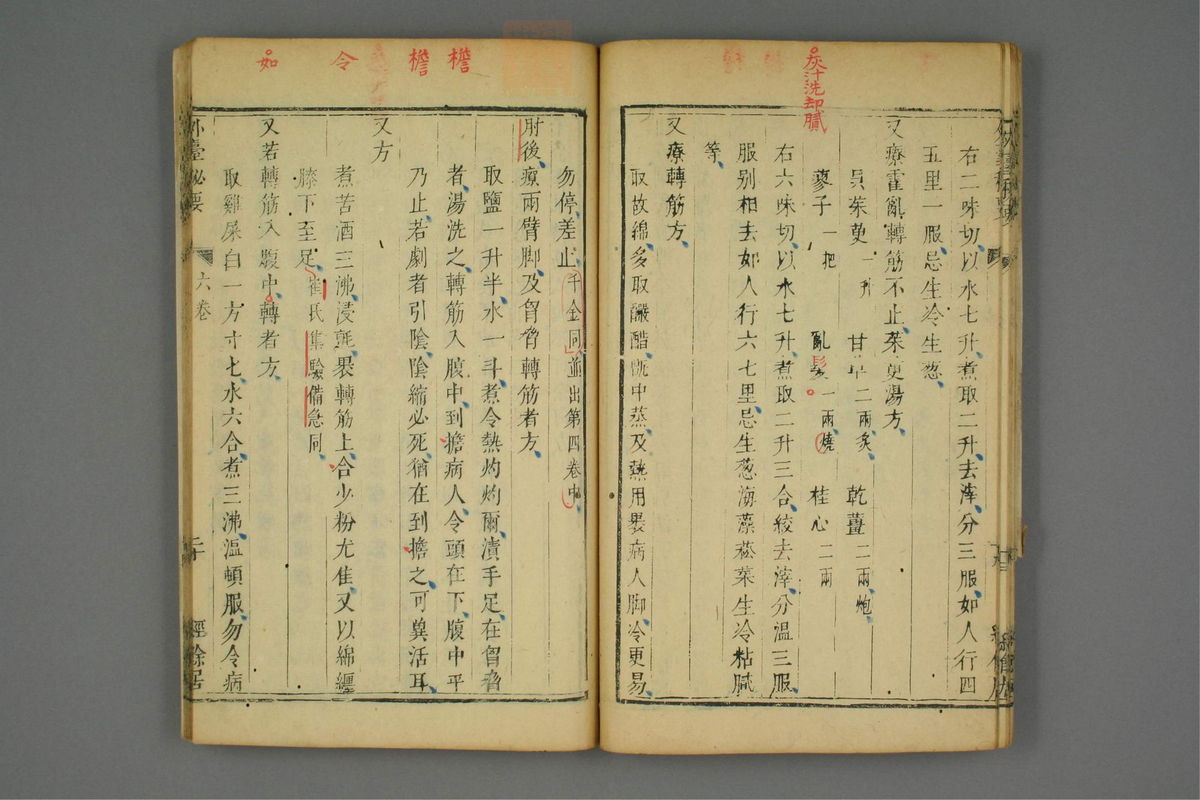 炭汁洗却膩
右二味切以水七升煮取二升去滓分三服如人行四
五里一服忌生冷生葱
又療霍亂轉筋不止茱萸湯方
吳茱萸一升 甘草二兩炙 乾薑二兩炮
蓼子一把 亂髮一兩燒 桂心二兩
右六味切以水七升煮取二升三合絞去滓分温三服
服别相去如人行六七里忌生葱海藻菘菜生冷粘膩
等
又療轉筋方
取故綿多取釅醋甑中蒸及熱用褁病人脚冷更易
檐 檐 令 如
勿停差止千金同並出第四卷中
肘後療兩臂脚及胷脅轉筋者方
取鹽一升半水一斗煮令熱灼灼爾漬手足在胷脅
者湯洗之轉筋入腹中到擔病人令頭在下腹中平
乃止若劇者引陰陰縮必死猶在到擔之可兾活耳
又方
煮苦酒三沸浸氊褁轉筋上合少粉尤佳又以綿纒
膝下至足崔氏集驗備急同
又若轉筋入腹中轉者方
取雞屎白一方寸匕水六合煮三沸温頓服勿令病
外臺秘要 六卷 二十 經餘居